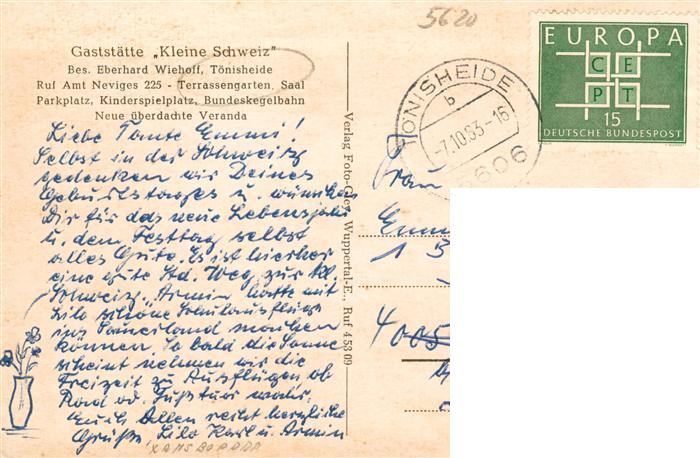 5620
Gaststätte „Kleine Schweiz"
Bes. Eberhard Wiehoff, Tönisheide
Ruf Amt Neviges 225 - Terrassengarten, Saal
Parkplatz, Kinderspielplatz, Bundeskegelbahn
Neue überdachte Veranda
Liebe Tante Emmi!
Selbst in der Schweiz
gedenken wir Deines
Geburtstages u. wünschen
Dir für das neue Lebensjahr
u. dem Festtag selbst
alles Gute. Es ist hierher
eine gute Std. Weg zur kl.
Schweiz. Armin hatte mit
Lilo schöne Schulausflüge
ins Sauerland machen
können. So bald die Sonne
scheint nehmen wir die
Freizeit zu Ausflügen ob
Rad od. Fußtour wahr.
Euch Allen recht herzliche
Grüße, Lilo Karl u. Armin
Verlag Foto-Grey, Wuppertal-E., Ruf 4 53 09
TÖNISHEIDE
b
-7.10.63-16
5606
EUROPA
CE
PT
15
DEUTSCHE BUNDESPOST
Frau
Emm
1
4005